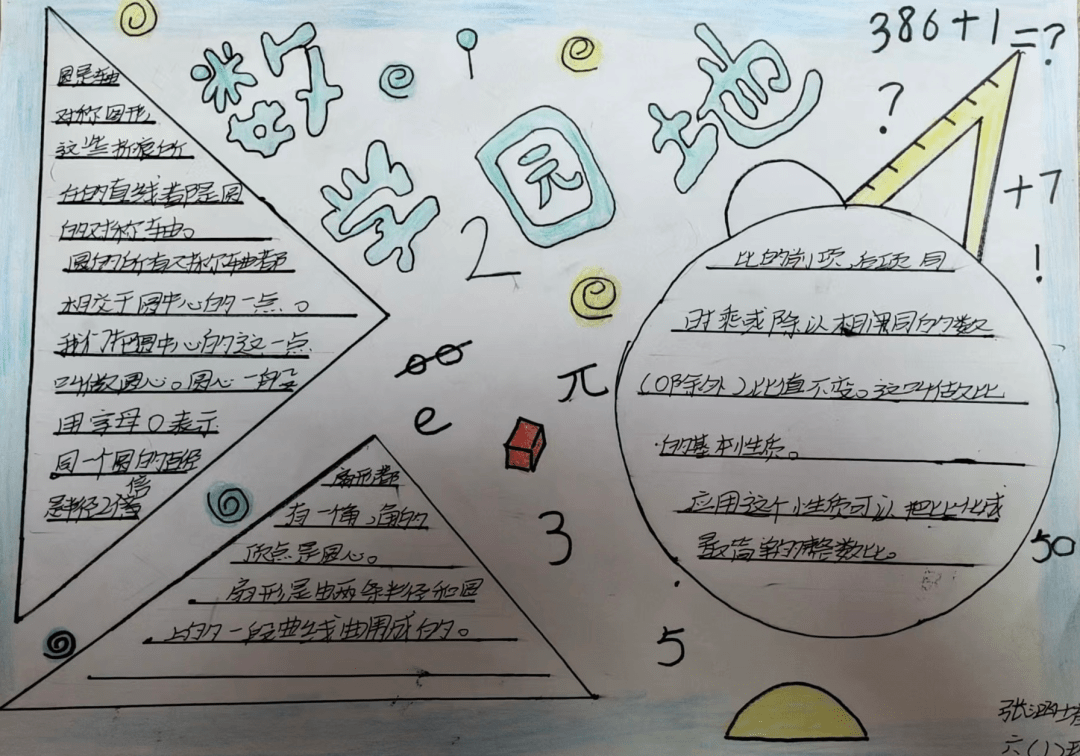 数学园地
386+1=?
?
+7
!
圆是轴
对称图形
这些折痕所
在的直线都是圆
的对称轴。
圆的所有对称轴都
相交于圆中心的一点。
我们把圆中心的这一点
叫做圆心。圆心一般
用字母O表示
同一个圆的直径
是半径2倍
2
e
π
3
5
50
扇形都
有一个角,角的
顶点是圆心。
扇形是由两条半径和圆
上的一段曲线曲围成的。
比的前项、后项同
时乘或除以相同的数
(0除外)比值不变。这叫做比
的基本性质。
应用这个性质可以把比化成
最简单的整数比。
六(1)